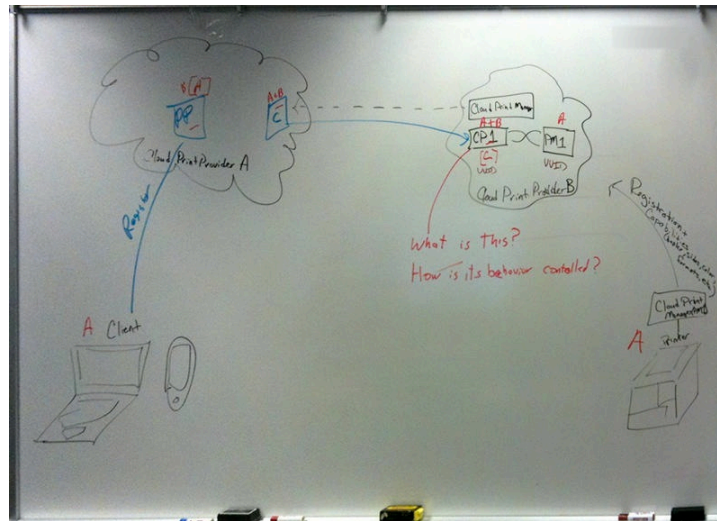 $ [A]
PP
A+B
C
Cloud Print Provider A
Register
A Client
Cloud Print Mana
A+B
CP1
[C]
UUID
A
PM1
UUID
Cloud Print Provider B
What is this?
How is its behavior controlled?
Registration +
Capabilities
Cloud Print
Management
A
Printer